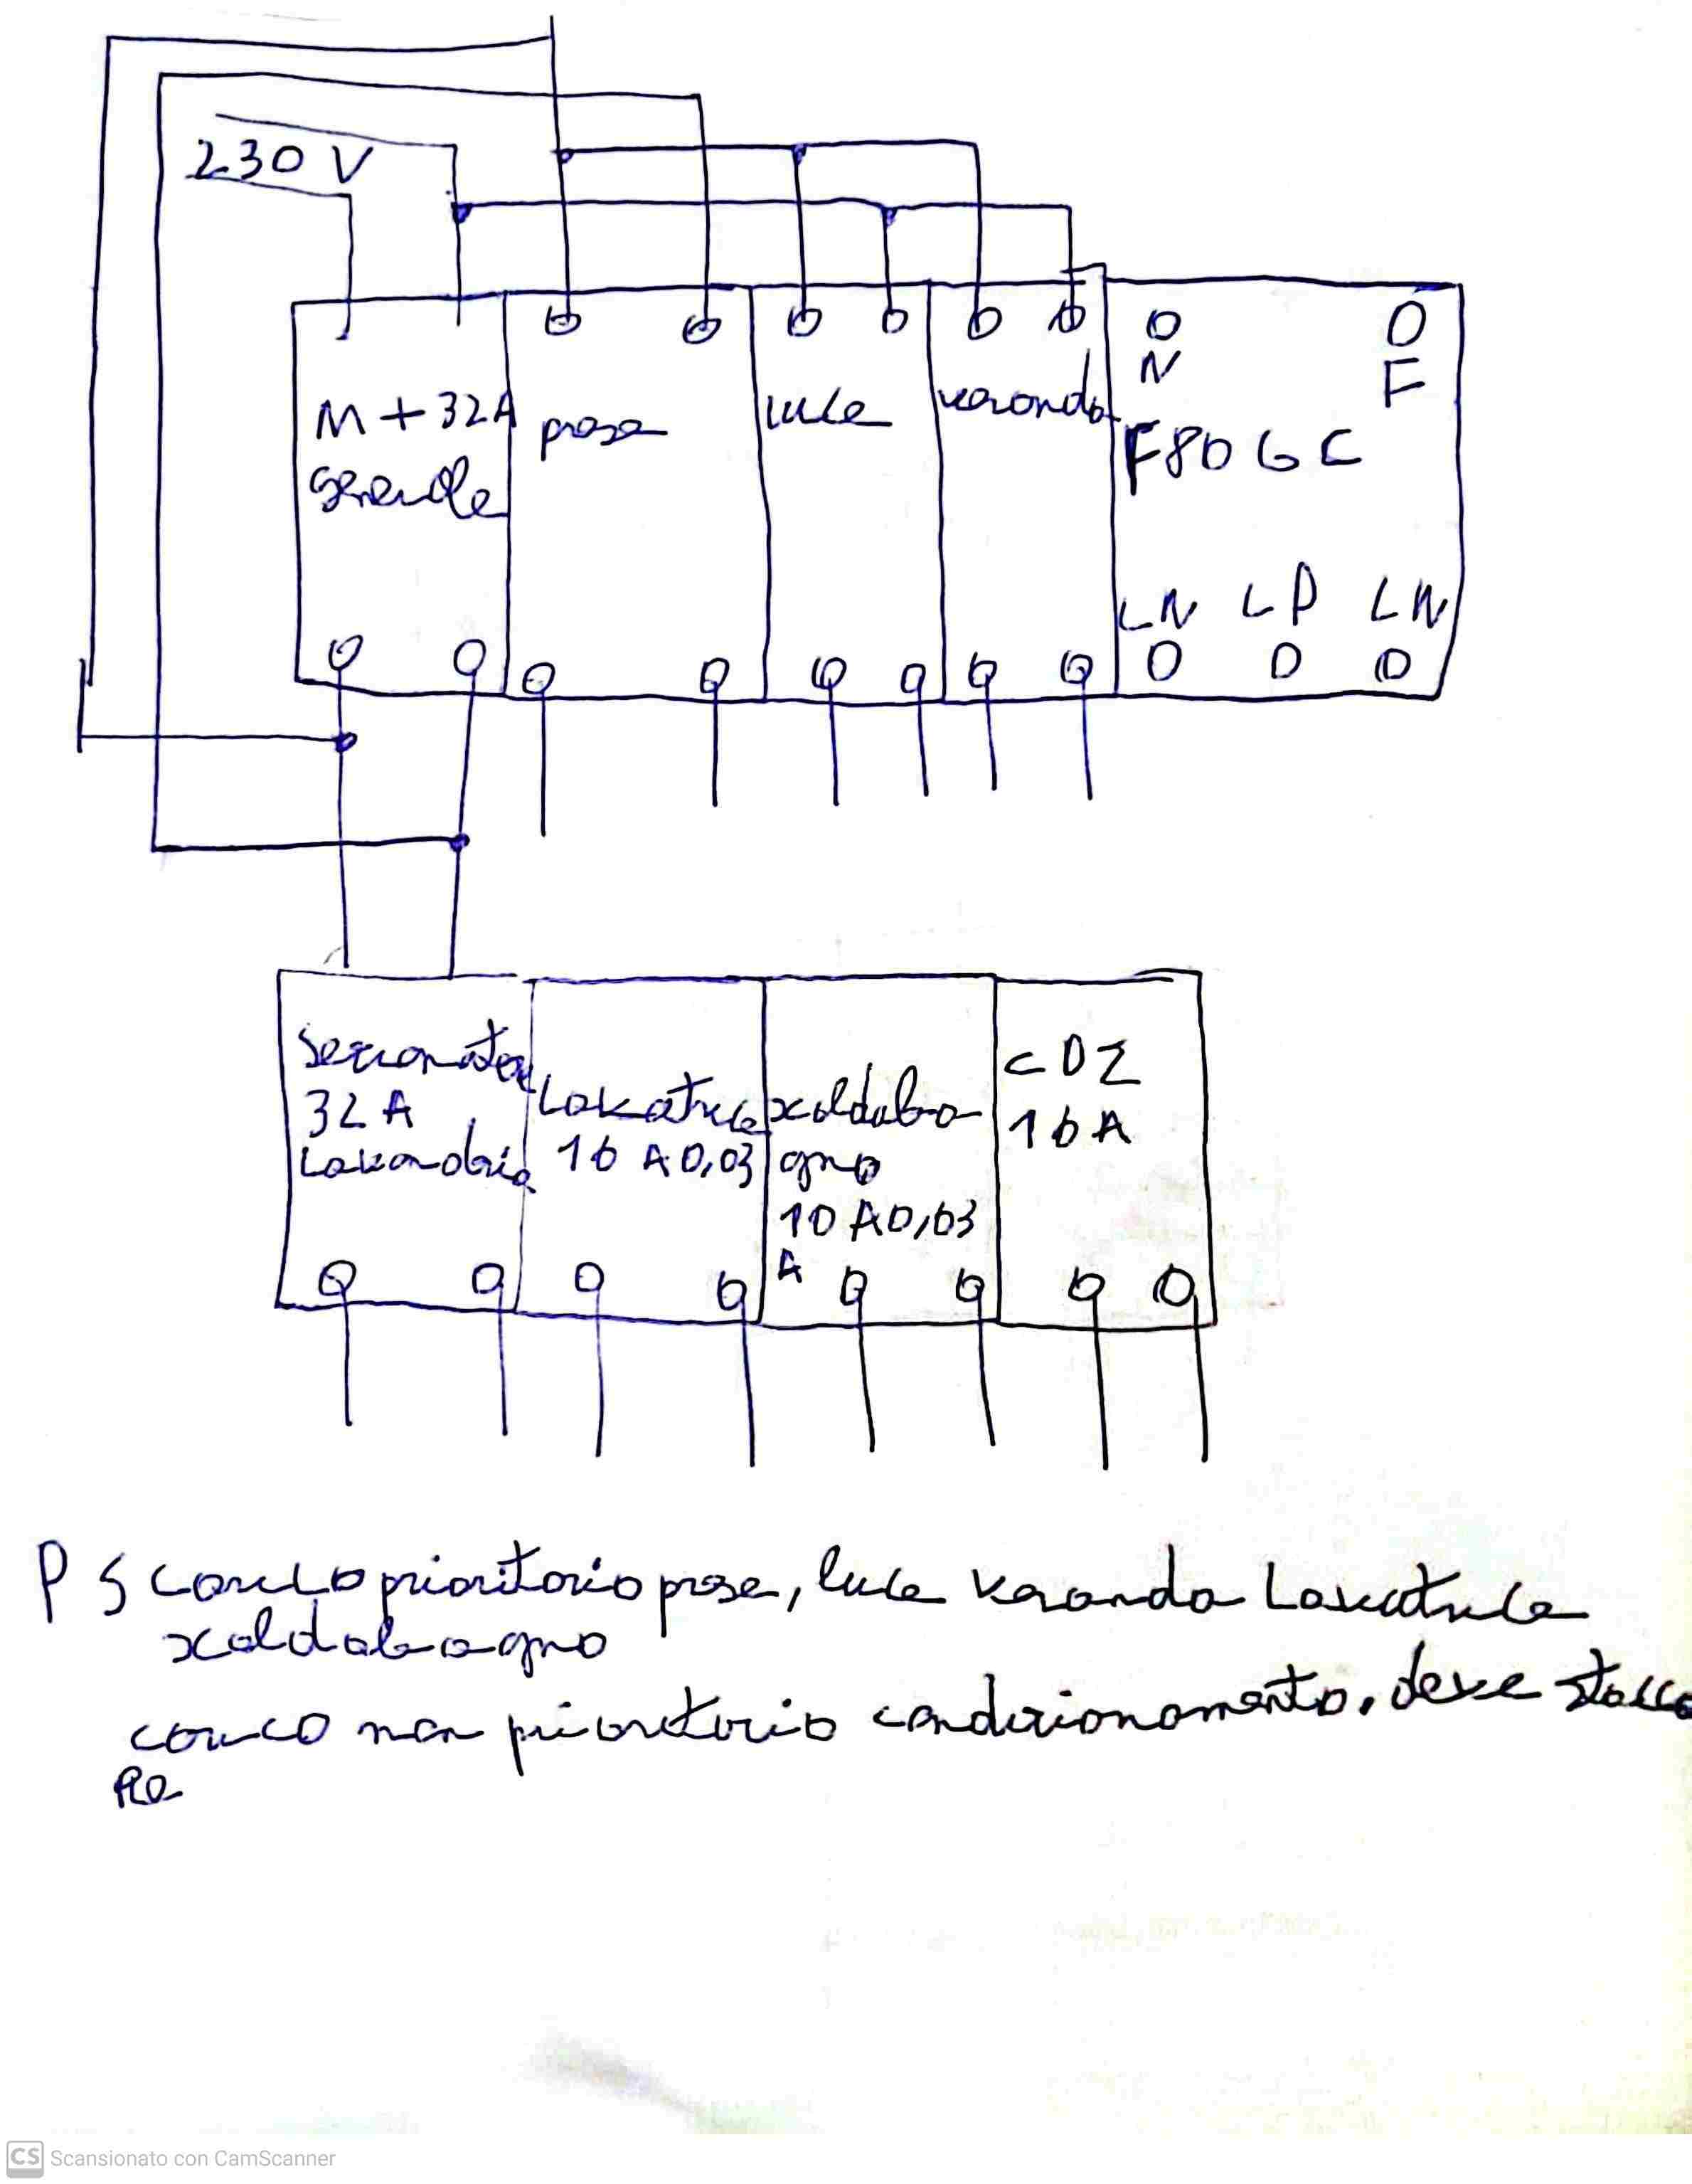 230 V
M + 32A
generale
prese
luce
veranda
O
N
O
F
F80GC
LN LP LN
Sezionatore
32A
Lavanderia
Lavatrice
16 A 0,03
scaldaba
gno
10 A 0,03
A
CDZ
16A
PS carico prioritario prese, luce veranda Lavatrice
scaldabagno
carico non prioritario condizionamento, deve stacca
RE
CS Scansionato con CamScanner